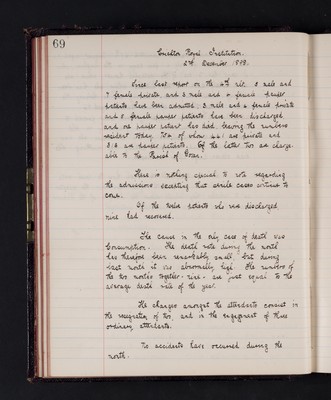 69
Crichton Royal Institution.
6th December 1893.
Since last report on the 6th ult. 8 male and
7 female private and 3 male and female pauper
patients have been admitted; 3 male and 4 female private
and 5 female pauper patients have been discharged
and one pauper patient has died, leaving the numbers
resident today of whom are private and
are pauper patients. Of the latter two are charge-
able to the Parish of
There is nothing special to note regarding
the admissions excepting that senile cases continue to
come.
Of the twelve patients who were discharged
nine had recovered.
The cause in the only case of death was
Consumption. The death rate during the month
has therefore been remarkably small, but during
last month it was abnormally high. The numbers of
the two months together - nine - are just equal to the
average death rate of the year.
The changes amongst the attendants consist in
the resignation of two, and in the engagement of three
ordinary attendants.
No accidents have occurred during the
month.